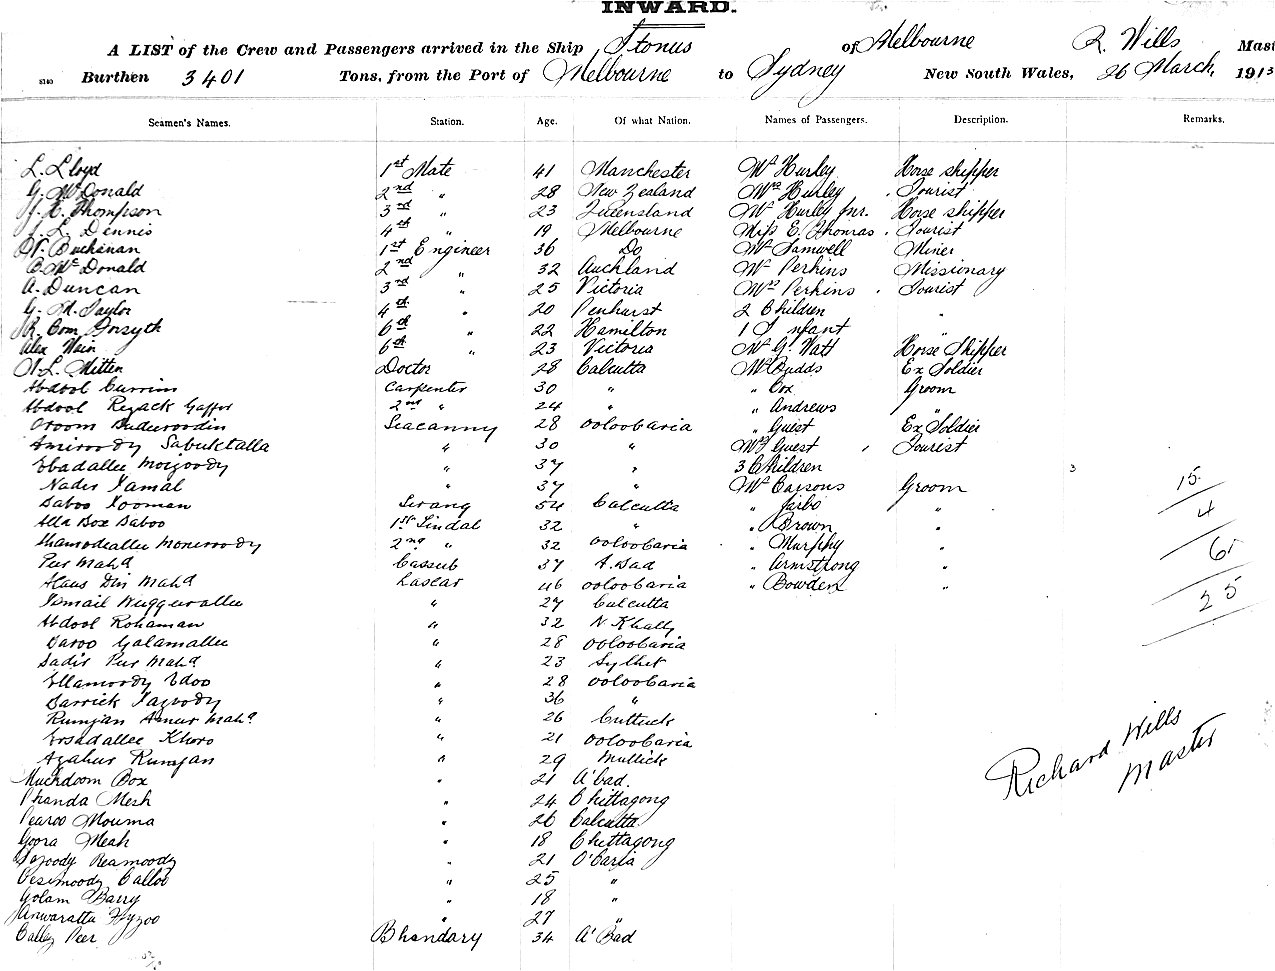 INWARD.
A LIST of the Crew and Passengers arrived in the Ship Itonus of Melbourne R. Wills Mast
8140 Burthen 3401 Tons, from the Port of Melbourne to Sydney New South Wales, 26 March, 1913
Seamen's Names. Station. Age. Of what Nation. Names of Passengers. Description. Remarks.
L. Lloyd 1st Mate 41 Manchester Mr Hurley Horse shipper
G. McDonald 2nd " 28 New Zealand Mrs Hurley Tourist
J. E. Thompson 3rd " 23 Queensland Mr Hurley jnr. Horse shipper
J. L. Dennis 4th " 19 Melbourne Miss E. Thomas Tourist
W. Buchanan 1st Engineer 36 Do Mr Samwell Miner
C. McDonald 2nd " 32 Auckland Mr Perkins Missionary
A. Duncan 3rd " 25 Victoria Mrs Perkins Tourist
G. A. Taylor 4th " 20 Penhurst 2 Children "
R. Com Forsyth 6th " 22 Hamilton 1 Infant "
Alex Wain 6th " 23 Victoria Mr G. Watt Horse Shipper
L. Mitten Doctor 28 Calcutta Mr Budds Ex Soldier
Abdool Currim Carpenter 30 " " Cox Groom
Abdool Rezack Gaffor 2nd " 24 " " Andrews "
Seacunny 28 Ooloobaria " Guest Ex Soldier
Sabuktalla " 30 " Mrs Guest Tourist
Ebadallee Moizoody " 37 " 3 Children 3
Nadir Jamal " 37 " Mr Carsons Groom 15
Baboo Tooman Serang 54 Calcutta " Jarbo " 4
Alla Box Baboo 1st Tindal 32 " " Brown "
Shamodeallee Monimoody 2nd " 32 Ooloobaria " Murphy " 6
Peer Mahd Cassub 37 A. Bad " Armstrong "
Din Mahd Lascar 46 Ooloobaria " Bowden " 25
Ismail " 27 Calcutta
Abdool Rohaman " 32 N Khally
Baroo Golamallee " 28 Ooloobaria
Sadir Peer Mahd " 23 Sylhet
Ellamoody Edoo " 28 Ooloobaria
" 36 "
Rumjan Amur Mahd " 26 Cuttuck
Ersadallee Khoro " 21 Ooloobaria
Azahur Rumjan " 29 Mullick
Muckdoom Box " 21 A'bad.
Meah " 24 Chittagong
Pearoo Mouma " 26 Calcutta
Goora Meah " 18 Chittagong
Reamoody " 21 O'Baria
" 25 "
Golam Barry " 18 "
Anwaratta Fyzoo " 27 "
Calley Peer Bhandary 34 A'Bad
Richard Wills
Master